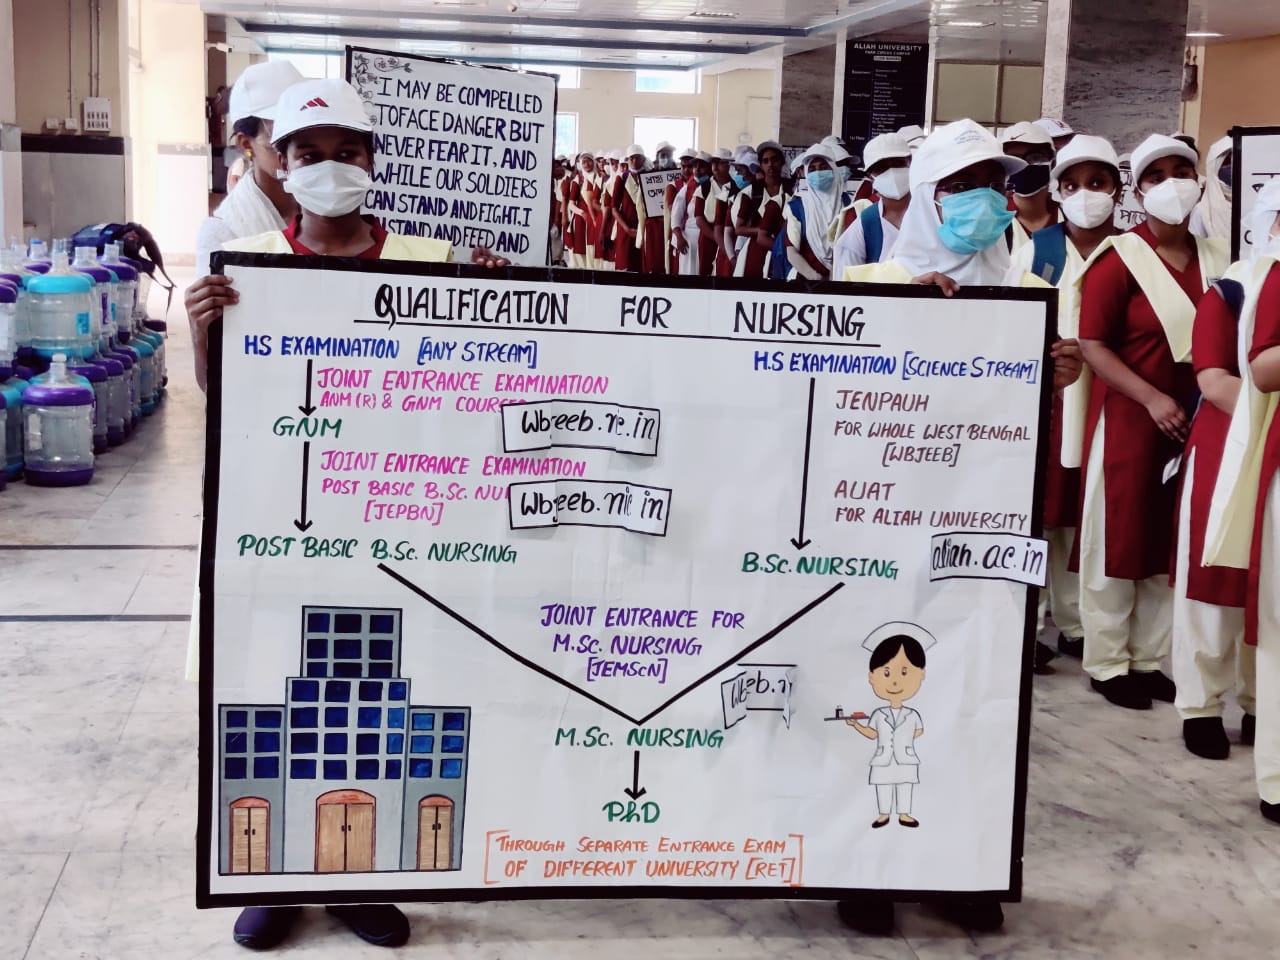 ALIAH UNIVERSITY
PARK CIRCUS CAMPUS
I MAY BE COMPELLED
TO FACE DANGER BUT
NEVER FEAR IT, AND
WHILE OUR SOLDIERS
CAN STAND AND FIGHT, I
STAND AND FEED AND
QUALIFICATION FOR NURSING
HS EXAMINATION [ANY STREAM]
JOINT ENTRANCE EXAMINATION
ANM (R) & GNM COURSE
Wbjeeb.nic.in
GNM
JOINT ENTRANCE EXAMINATION
POST BASIC B.Sc. NU
[JEPBN]
Wbjeeb.nic in
POST BASIC B.Sc. NURSING
H.S EXAMINATION [SCIENCE STREAM]
JENPAUH
FOR WHOLE WEST BENGAL
[WBJEEB]
AUAT
FOR ALIAH UNIVERSITY
aliah.ac.in
B.Sc. NURSING
JOINT ENTRANCE FOR
M.Sc. NURSING
[JEMScN]
M.Sc. NURSING
PhD
[THROUGH SEPARATE ENTRANCE EXAM
OF DIFFERENT UNIVERSITY [RET]]